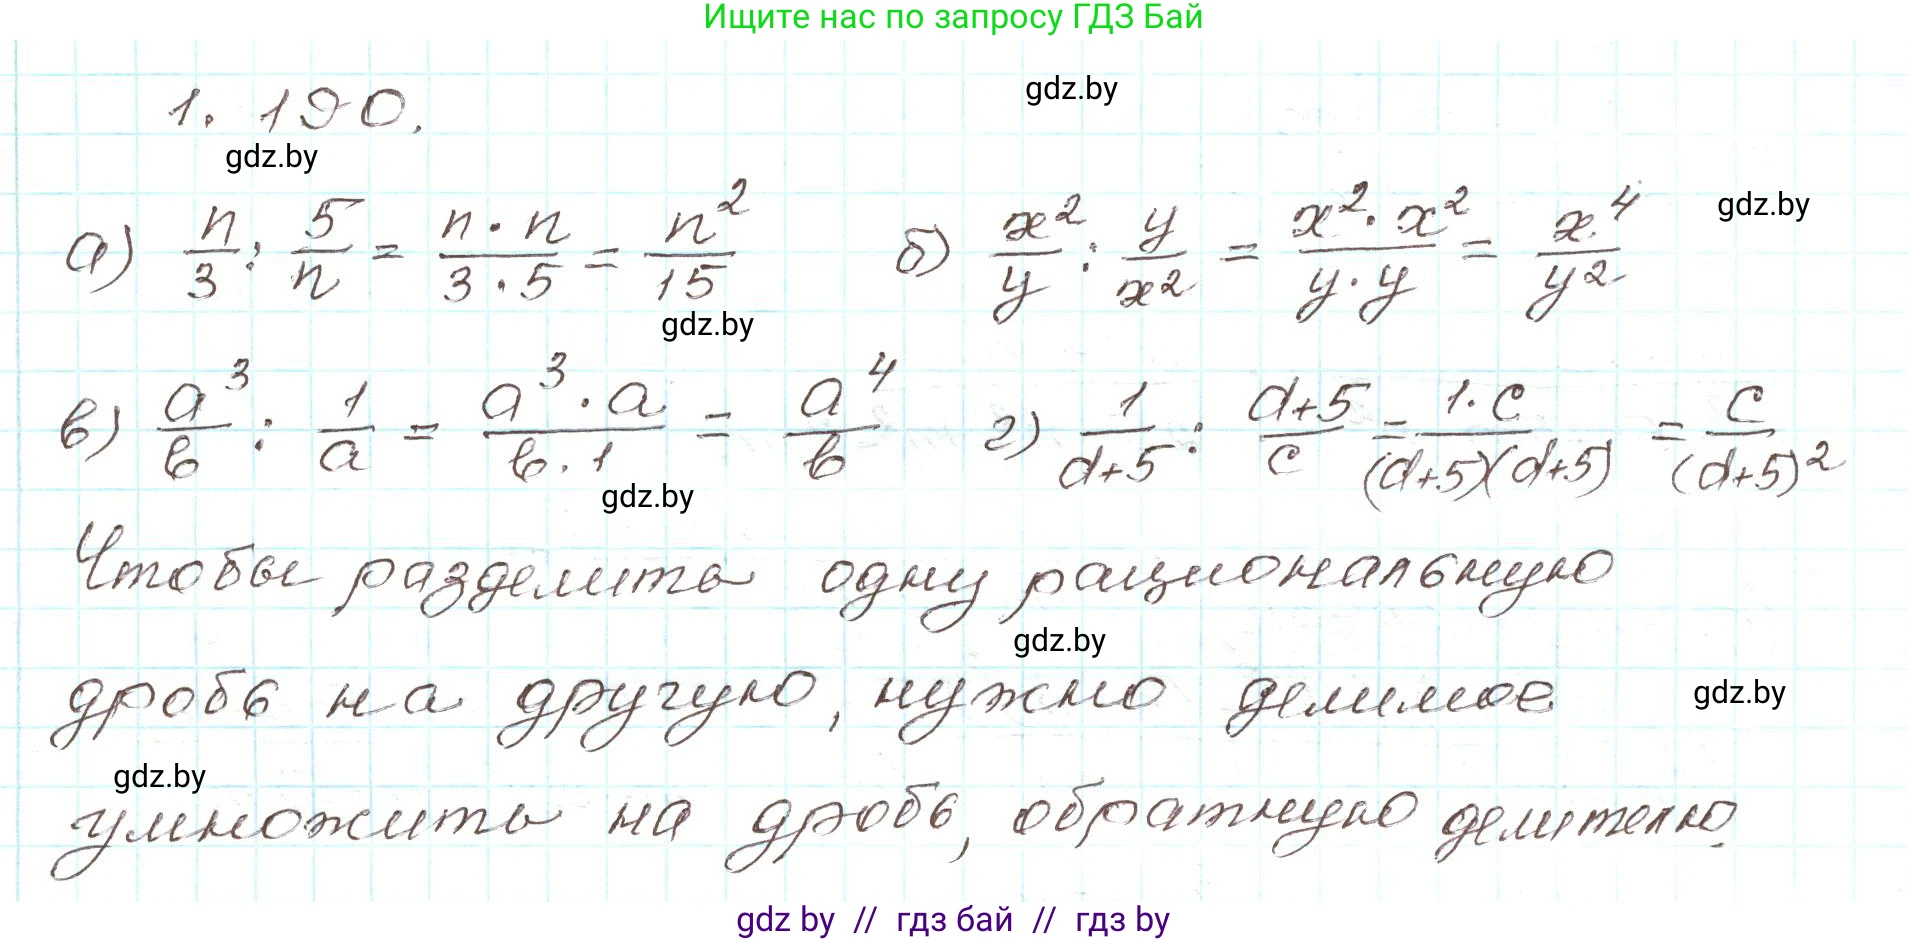 Ищите нас по запросу ГДЗ Бай
gdz.by
1.190.
gdz.by
а) n/3 : 5/n = n·n/3·5 = n²/15 б) x²/y : y/x² = x²·x²/y·y = x⁴/y²
gdz.by
gdz.by
в) a³/b : 1/a = a³·a/b·1 = a⁴/b г) 1/d+5 : d+5/c = 1·c/(d+5)(d+5) = c/(d+5)²
gdz.by
Чтобы разделить одну рациональную
gdz.by
дробь на другую, нужно делимое
gdz.by
gdz.by
умножить на дробь, обратную делителю.
gdz by // гдз бай // гдз by